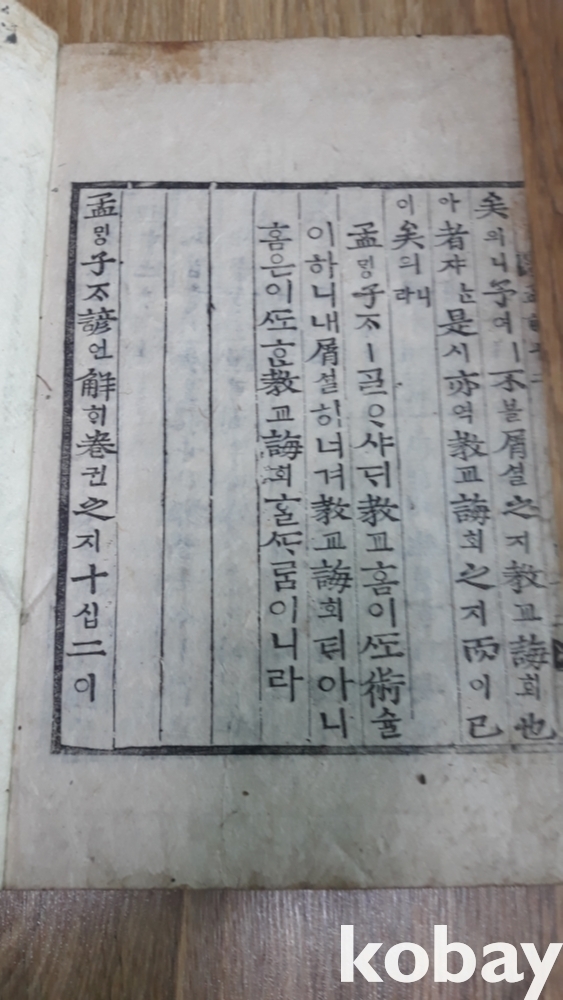 矣의니予여ㅣ不블屑셜之지教교誨회也
아者쟈ᄂᆞᆫ是시亦역教교誨회之지而이已
이矣의니라
孟ᄆᆡᆼ子ᄌᆞㅣᄀᆞᆯᄋᆞ샤ᄃᆡ教교홈이ᄯᅩ術슐
이하니내屑셜히너겨教교誨회티아니
홈은이ᄯᅩᄒᆞᆫ教교誨회홀ᄯᆞᄅᆞᆷ이니라
孟ᄆᆡᆼ子ᄌᆞ諺언解ᄒᆡ卷권之지十십二이
kobay